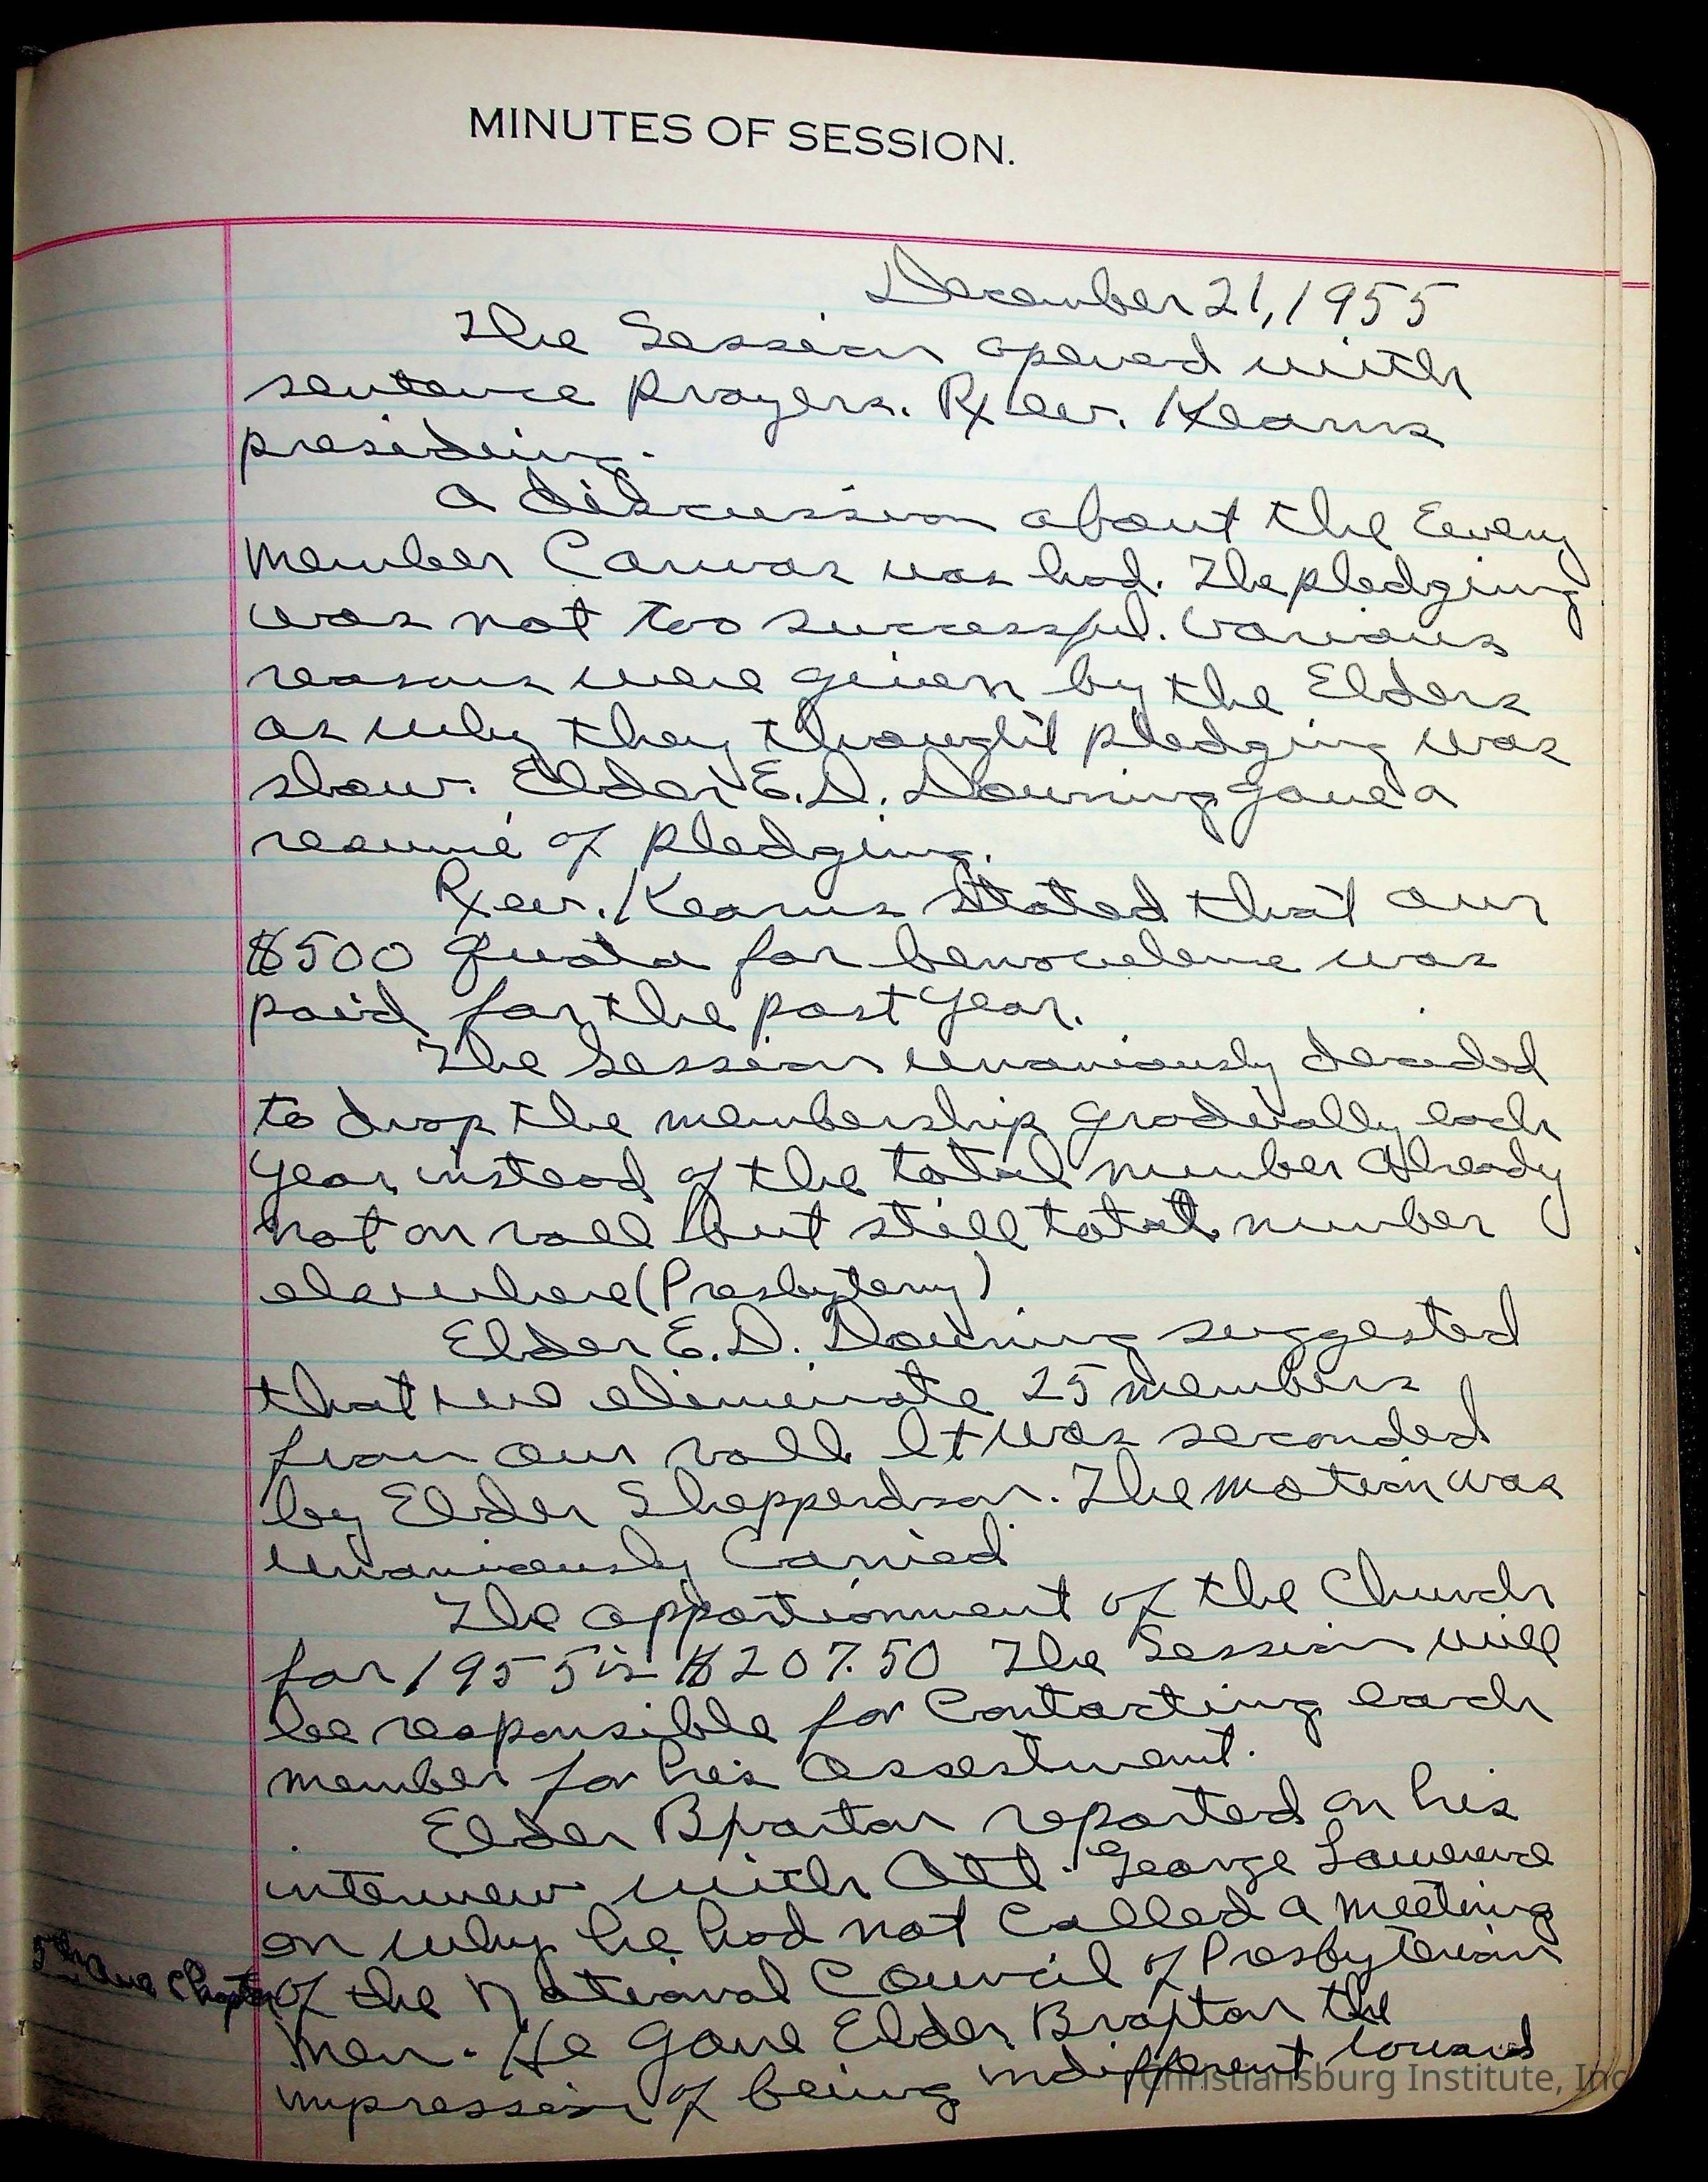 MINUTES OF SESSION.
December 21, 1955
The Session opened with
sentence prayers. Rev. Kearns
presiding.
A discussion about the Every
Member Canvas was had. The pledging
was not too successful. Various
reasons were given by the Elders
as why they thought pledging was
slow. Elder E.D. Downing gave a
resumé of pledging.
Rev. Kearns stated that our
$500 quota for benovelence was
paid for the past year.
The Session unaniously decided
to drop the membership gradually each
year instead of the total number already
not on roll but still total number
elsewhere (Presbytery)
Elder E.D. Downing suggested
that we eliminate 25 members
from our roll. It was seconded
by Elder Shepperdson. The motion was
unaniously carried
The apportionment of the Church
for 1955 is $207.50 The Session will
be responsible for contacting each
member for his assestment.
Elder reported on his
interview with Att. George Lawrence
on why he had not called a meeting
5th Ave Chapter of the National Council of Presbyterian
Men. He gave Elder the
impression of being indifferent toward
Christiansburg Institute, Inc